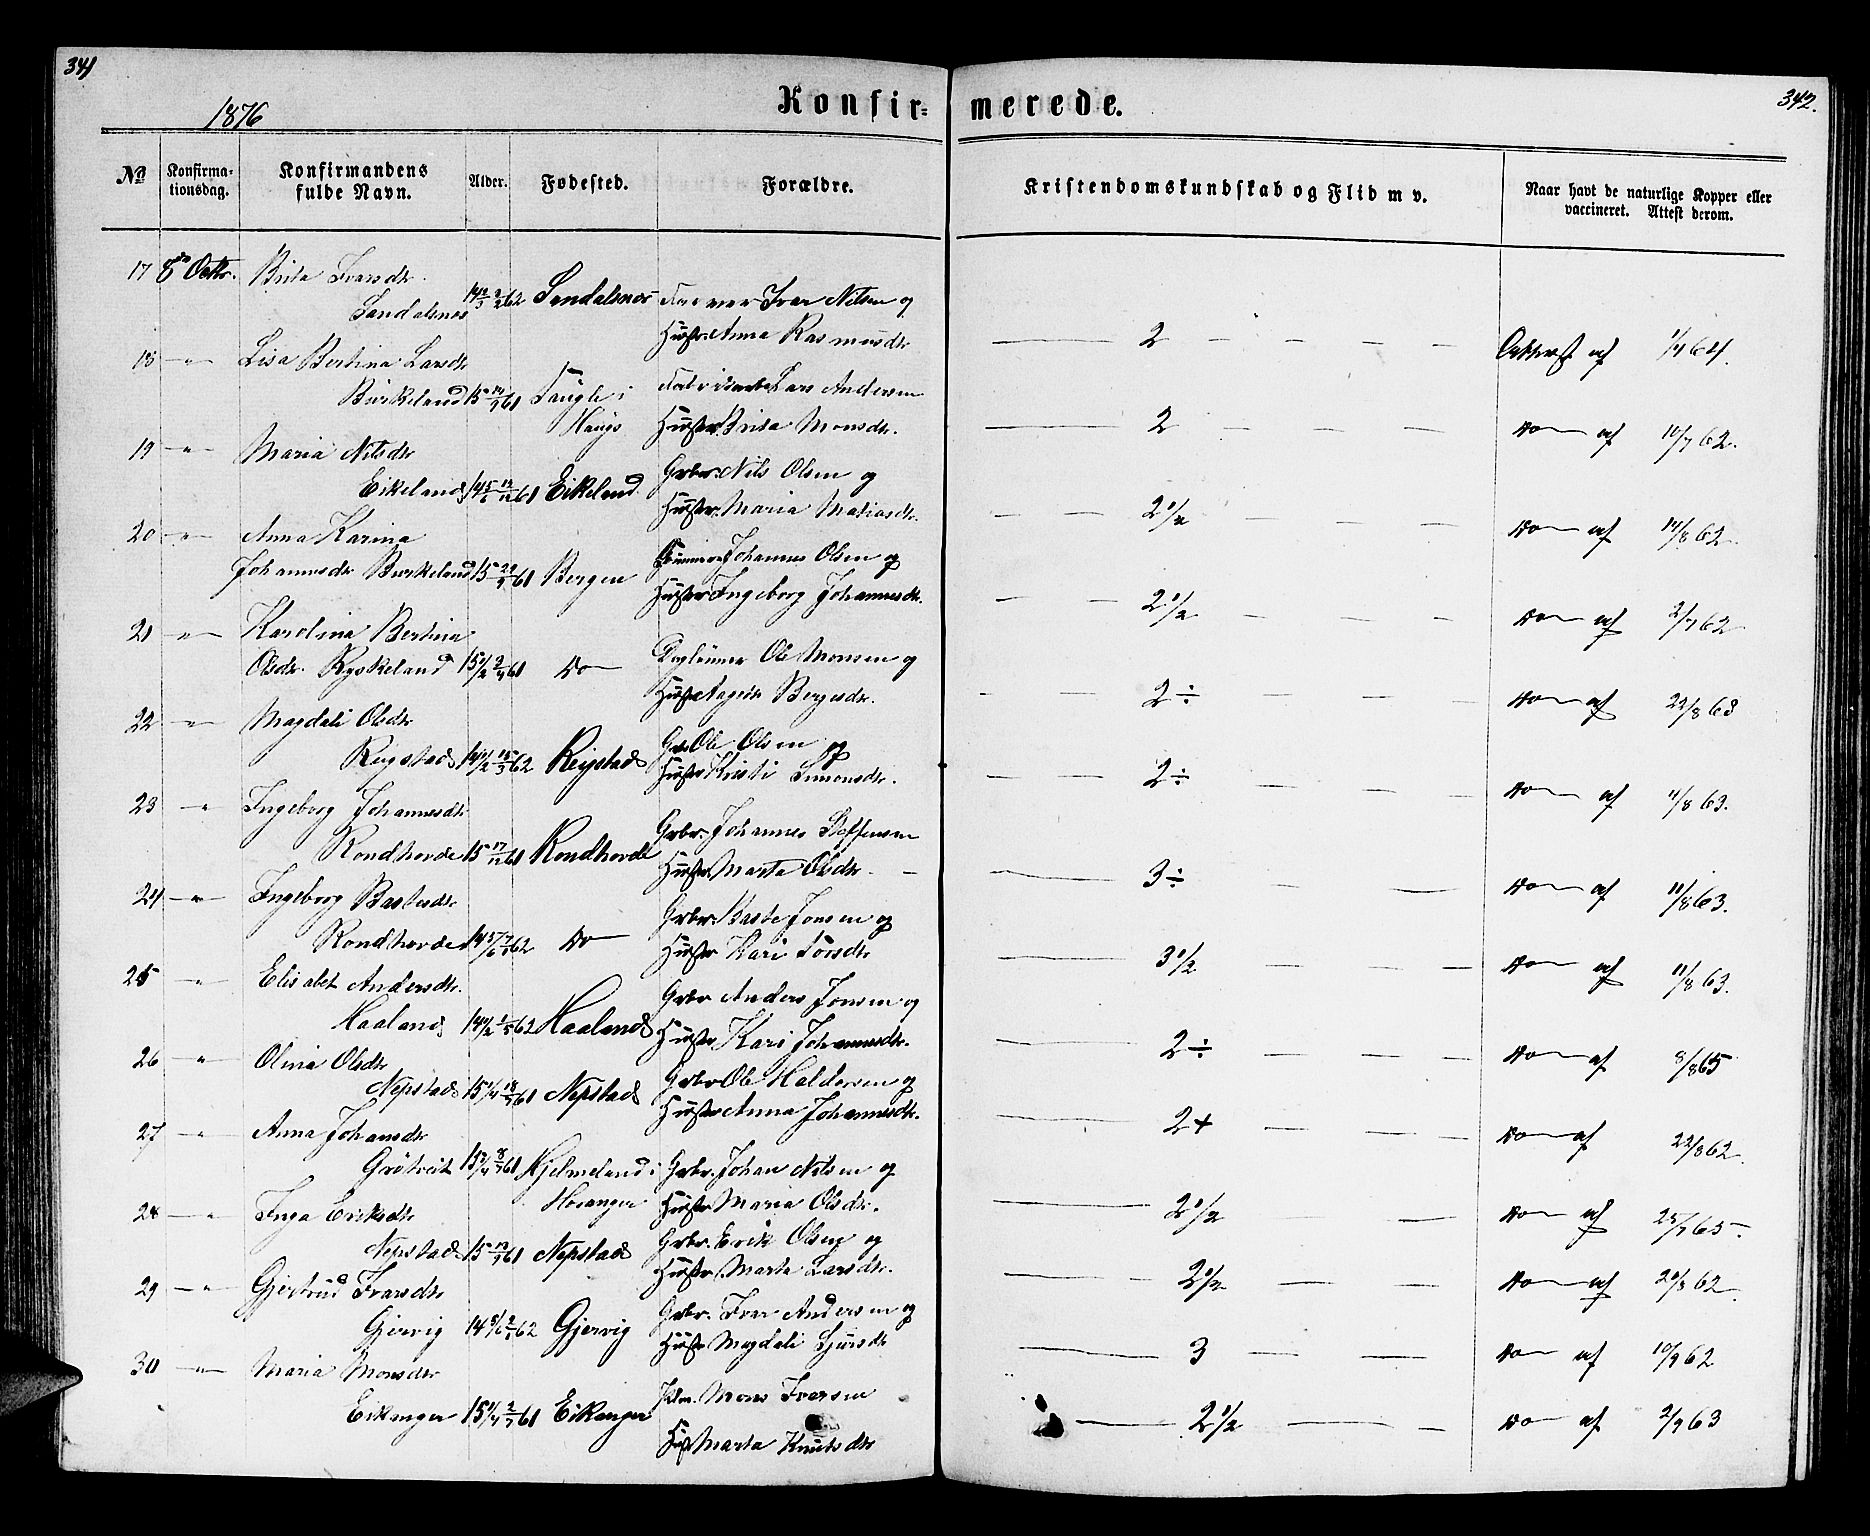 341
342.
1876
Konfir= merede.
No
Konfirma-
tionsdag.
Konfirmandens
fulde Navn.
Alder.
Fødested.
Forældre.
Kristendomskundskab og Flid m v.
Naar havt de naturlige Kopper eller
vaccineret. Attest derom.
17 8de Octbr. Brita Ivarsdtr.
Sandalsnes 14 2/3 2/2 62 Sandalsnes Ivar Nilsen og
Hustr. Anna Rasmusdtr
2 - - - - af 1/7 64.
18 -"- Lisa Bertina Larsdtr
Birkeland 15 14/9 61 i Lars Andersen
Haugs Hustr. Brita Monsdtr.
2 - - - Do - af 10/7 62.
19 -"- Maria Nilsdtr
Eikeland 14 5/6 12/12 61 Eikeland Grbr. Nils Olsen og
Hustr. Maria Matiasdtr.
2 1/2 - - - Do - af 14/8 62.
20 -"- Anna Karina
Johannesdtr Birkeland 15 29/9 61 Bergen Johannes Olsen og
Hustr Ingeborg Johannesdtr.
2 1/2 - - - Do - af 2/7 62.
21 -"- Karolina Bertina
Olsdtr. Ryskeland 15 1/2 2/4 61 Do - Ole Monsen og
Hustr Bergesdtr.
2 ÷ - - - Do - af 22/8 63
22 " Magdali Olsdtr
Reigstad 14 1/2 15/3 62 Reigstad Gbr Ole Olsen og
Hustr Kristi Simonsdtr.
2 ÷ - - - Do - af 11/8 63.
23 -" Ingeborg Johannesdtr
Rondhovde 15 17/12 61 Rondhovde Grbr. Johannes Steffensen
Hustr. Marta Olsdtr. -
3 ÷ - - Do - af 11/8 63.
24 -"- Ingeborg Bastesdtr
Rondhovde 14 5/6 7/1 62 Do - Grbr. Baste Jonsen og
Hustr Kari
3 1/2 - - - Do - af 11/8 63.
25 " Elisabet Andersdtr.
Haaland 14 1/2 1/5 62 Haaland Grbr Anders Jonsen og
Hustr Kari Johannesdtr.
2 ÷ - - - Do - af 8/8 65
26 " Olina Olsdtr
Nepstad 15 1/4 18/7 61 Nepstad Grbr Ole Haldorsen og
Hustr Anna Johannesdtr.
2 + - - - Do - af 22/8 62.
27 -" Anna Johansdtr
Grötveit 15 1/4 8/7 61 Hjelmeland i Grbr. Johan Nilsen og
Hosanger Hustr Maria Olsdtr.
2 1/2 - - Do - af 25/7 65.
28 -" Inga Eriksdtr
Nepstad 15 12/9 61 Nepstad Grbr. Erik Olsen og
Hustr Marta Larsdtr.
2 1/2 - - - Do - af 20/8 62.
29 -"- Gjertrud Ivarsdtr
Gjervig 14 5/6 2/1 62 Gjervig Grbr. Ivar Andersen og
Hustr Magdali Sjursdtr
3 - - Do - af 10/9 62
30 -"- Maria Monsdtr
Eikanger 15 1/4 2/7 61 Eikanger Mons Ivarsen
Hustr Marta Knutsdtr
2 1/2 - - Do - af 2/9 63